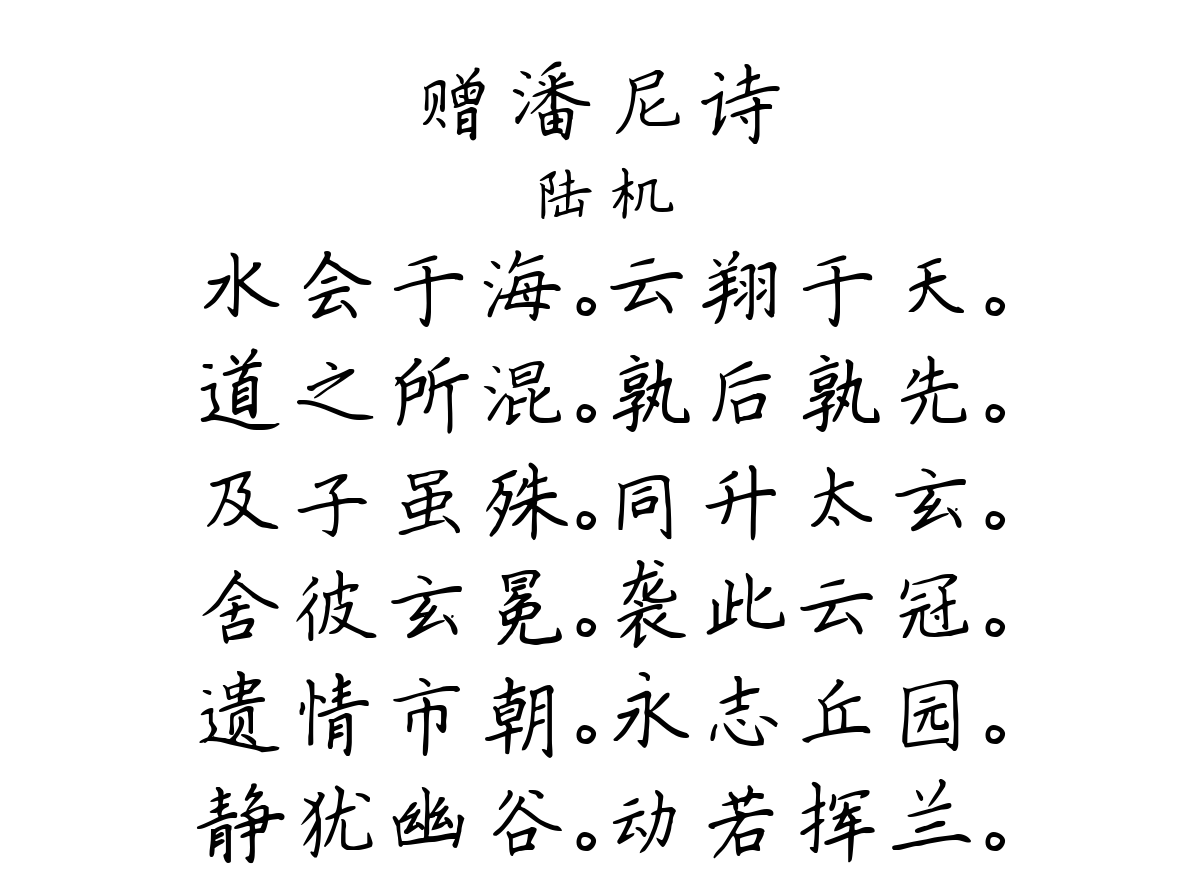 赠潘尼诗
陆机
水会于海。云翔于天。
道之所混。孰后孰先。
及子虽殊。同升太玄。
舍彼玄冕。袭此云冠。
遗情市朝。永志丘园。
静犹幽谷。动若挥兰。